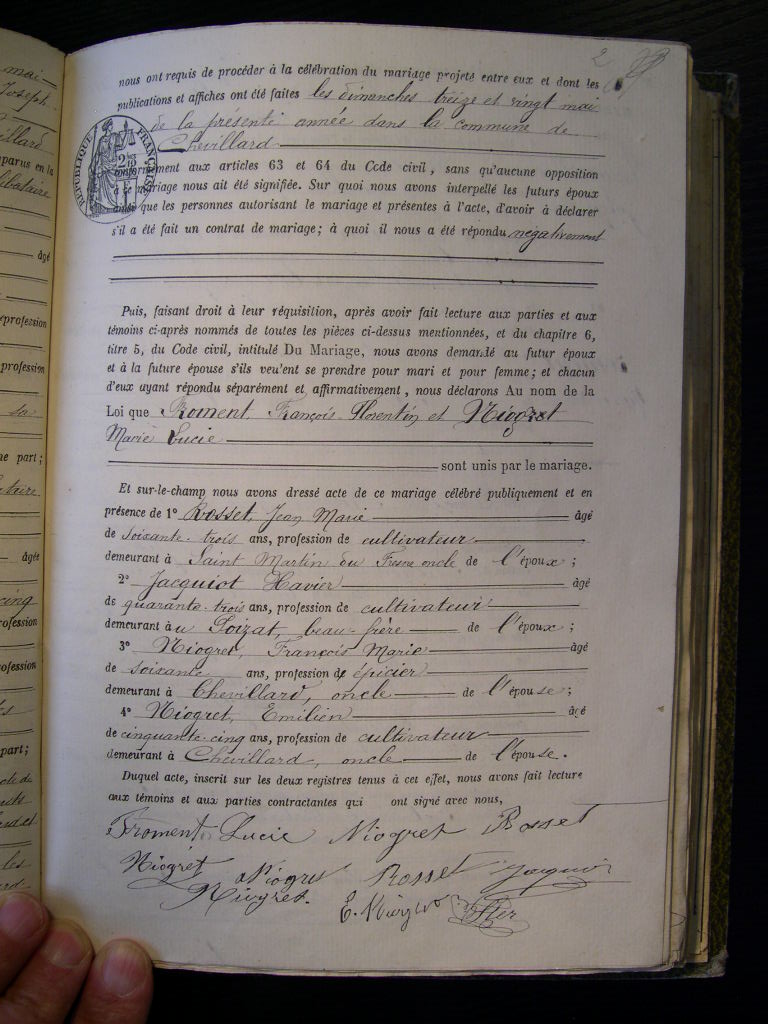 2
nous ont requis de procéder à la célébration du mariage projeté entre eux et dont les
publications et affiches ont été faites les dimanches treize et vingt mai
de la présente année dans la commune de
Chevillard
conformément aux articles 63 et 64 du Code civil, sans qu'aucune opposition
à ce mariage nous ait été signifiée. Sur quoi nous avons interpellé les futurs époux
ainsi que les personnes autorisant le mariage et présentes à l'acte, d'avoir à déclarer
s'il a été fait un contrat de mariage; à quoi il nous a été répondu négativement
RÉPUBLIQUE FRANÇAISE
Puis, faisant droit à leur réquisition, après avoir fait lecture aux parties et aux
témoins ci-après nommés de toutes les pièces ci-dessus mentionnées, et du chapitre 6,
titre 5, du Code civil, intitulé Du Mariage, nous avons demandé au futur époux
et à la future épouse s'ils veulent se prendre pour mari et pour femme; et chacun
d'eux ayant répondu séparément et affirmativement, nous déclarons Au nom de la
Loi que Froment, François-Florentin et Niogret
Marie Lucie
sont unis par le mariage.
Et sur-le-champ nous avons dressé acte de ce mariage célébré publiquement et en
présence de 1° Rosset, Jean Marie âgé
de soixante-trois ans, profession de cultivateur
demeurant à Saint Martin du Fresne oncle de l'époux;
2° Jacquiot Xavier âgé
de quarante-trois ans, profession de cultivateur
demeurant à Loizat, beau-frère de l'époux;
3° Niogret, François Marie âgé
de soixante ans, profession de épicier
demeurant à Chevillard, oncle de l'épouse;
4° Niogret, Emilien âgé
de cinquante-cinq ans, profession de cultivateur
demeurant à Chevillard, oncle de l'épouse.
Duquel acte, inscrit sur les deux registres tenus à cet effet, nous avons fait lecture
aux témoins et aux parties contractantes qui ont signé avec nous,
Froment Lucie Niogret Rosset
Niogret Niogret Rosset
Niogret. E. Niogret